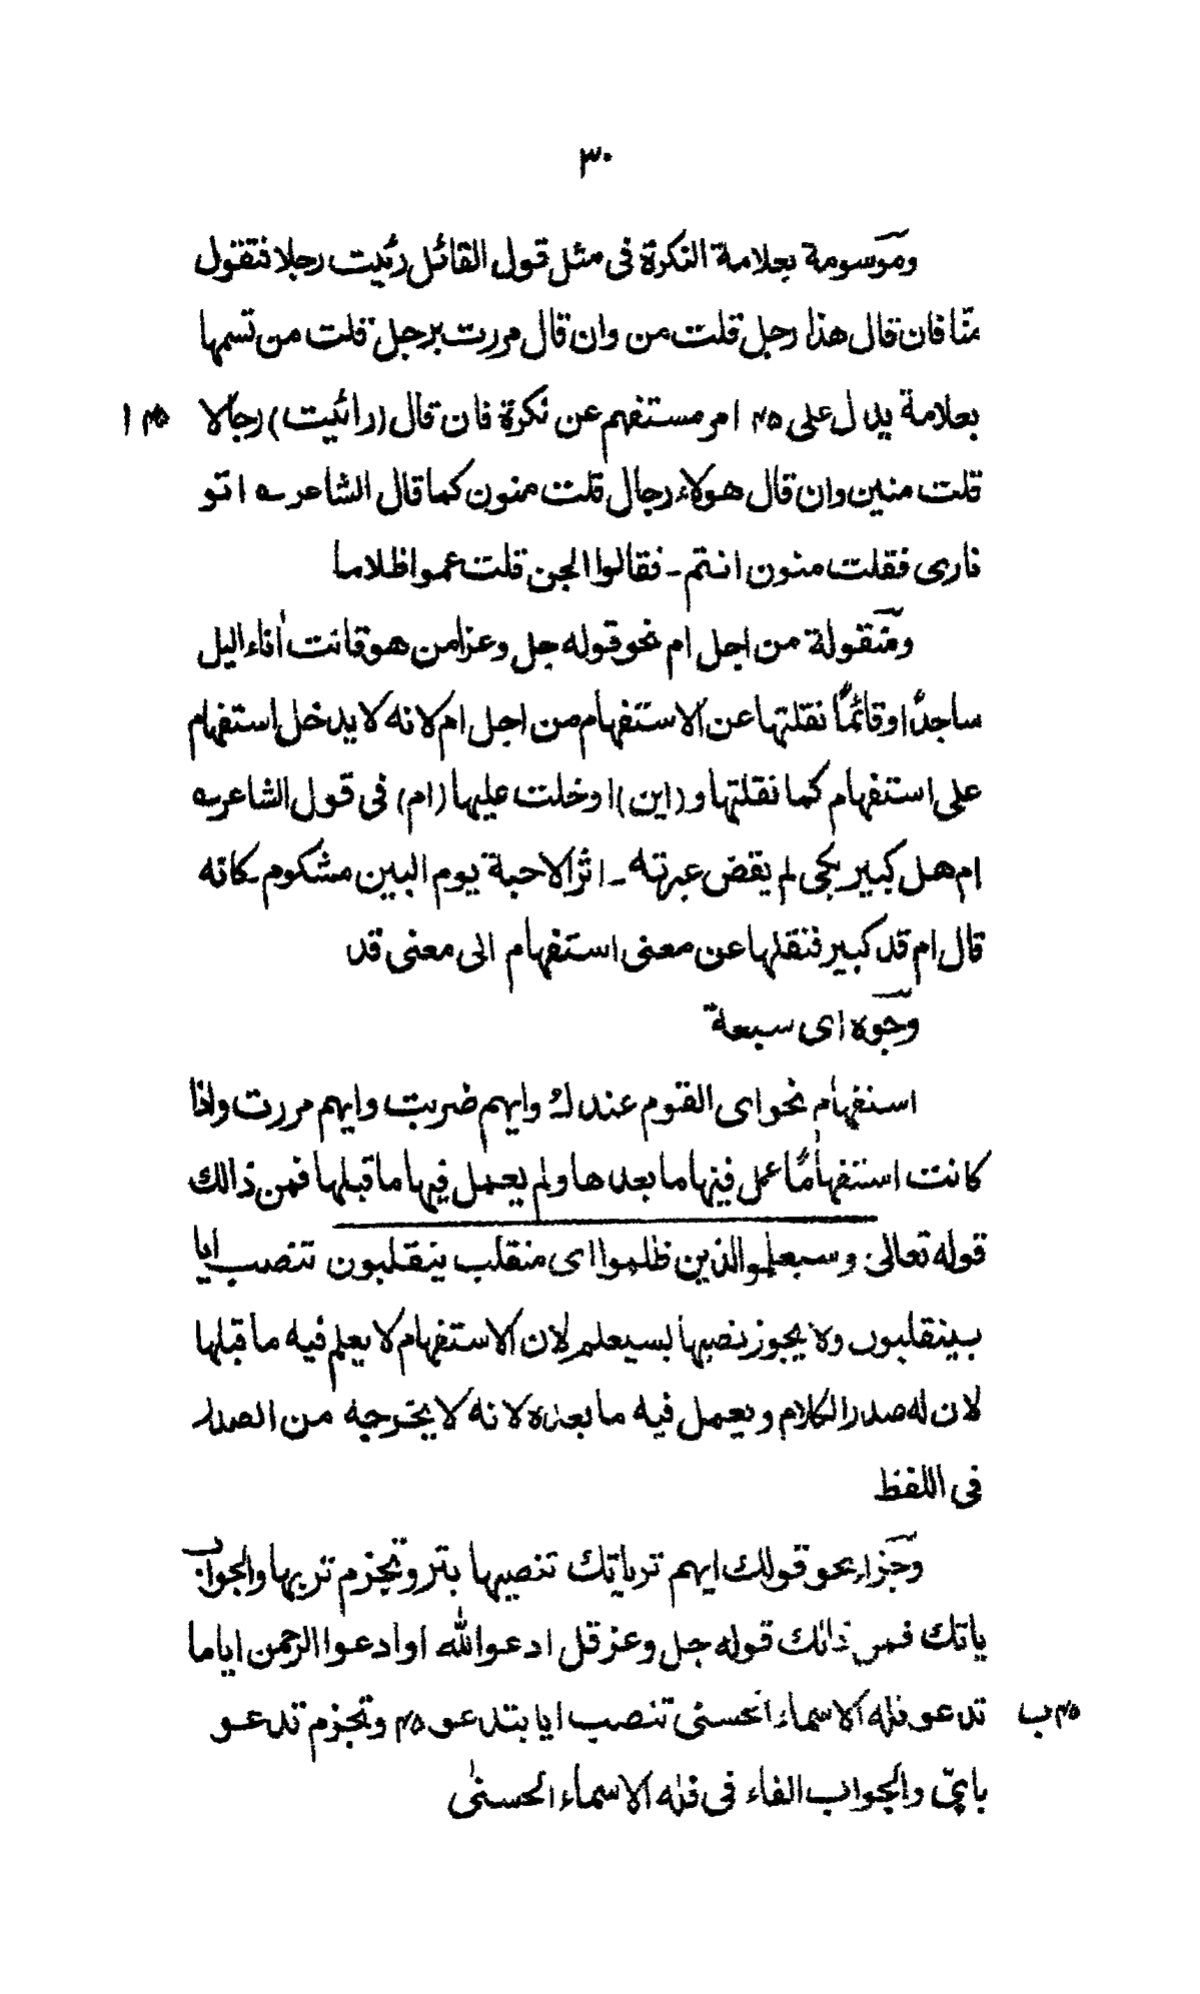 ٣٠
وموسومة بعلامة النكرة فى مثل قول القائل رئيت رجلا فتقول
منّا فان قال هذا رجل قلت من وان قال مررت برجل قلت من تسمها
بعلامة يدل على ٤٥ امر مستفهم عن نكرة فان قال (رائيت) رجالا ٤٥ ا
قلت منين وان قال هولاء رجال قلت منون كما قال الشاعر ؎ اتو
نارى فقلت منون انتم ـ فقالوا الجن قلت عموا ظلاما
ومنقولة من اجل ام نحو قوله جل وعز امن هو قانت أناء اليل
ساجدًا وقائمًا نقلتها عن الاستفهام من اجل ام لانه لا يدخل استفهام
على استفهام كما نقلتها و (اين) ادخلت عليها (ام) فى قول الشاعر ؎
ام هل كبير بجى لم يقض عبرته ـ اثر الاحبة يوم البين مشكوم ـ كانه
قال ام قد كبير فنقلها عن معنى استفهام الى معنى قد
وجوه اى سبعة
استفهام نحو اى القوم عندك وايهم ضربت وايهم مررت واذا
كانت استفهامًا عمل فيها ما بعدها ولم يعمل فيها ما قبلها فمن ذالك
قوله تعالى وسيعلمو الذين ظلموا اى منقلب ينقلبون تنصب ايا
بينقلبون ولا يجوز نصبها بسيعلم لان الاستفهام لا يعلم فيه ما قبلها
لان له صدر الكلام ويعمل فيه ما بعده لانه لا يخرجه من الصدر
فى اللفظ
وجزاء نحو قولك ايهم تر ياتك تنصبها بتر وتجزم تربها والجواب
ياتك فمن ذالك قوله جل وعز قل ادعوالله او ادعوا الرحمن اياما
٤٥ ب تدعو فله الاسماء الحسنى تنصب ايا بتدعو ٤٥ وتجزم تدعو
باىّ والجواب الفاء فى فله الاسماء الحسنىٰ